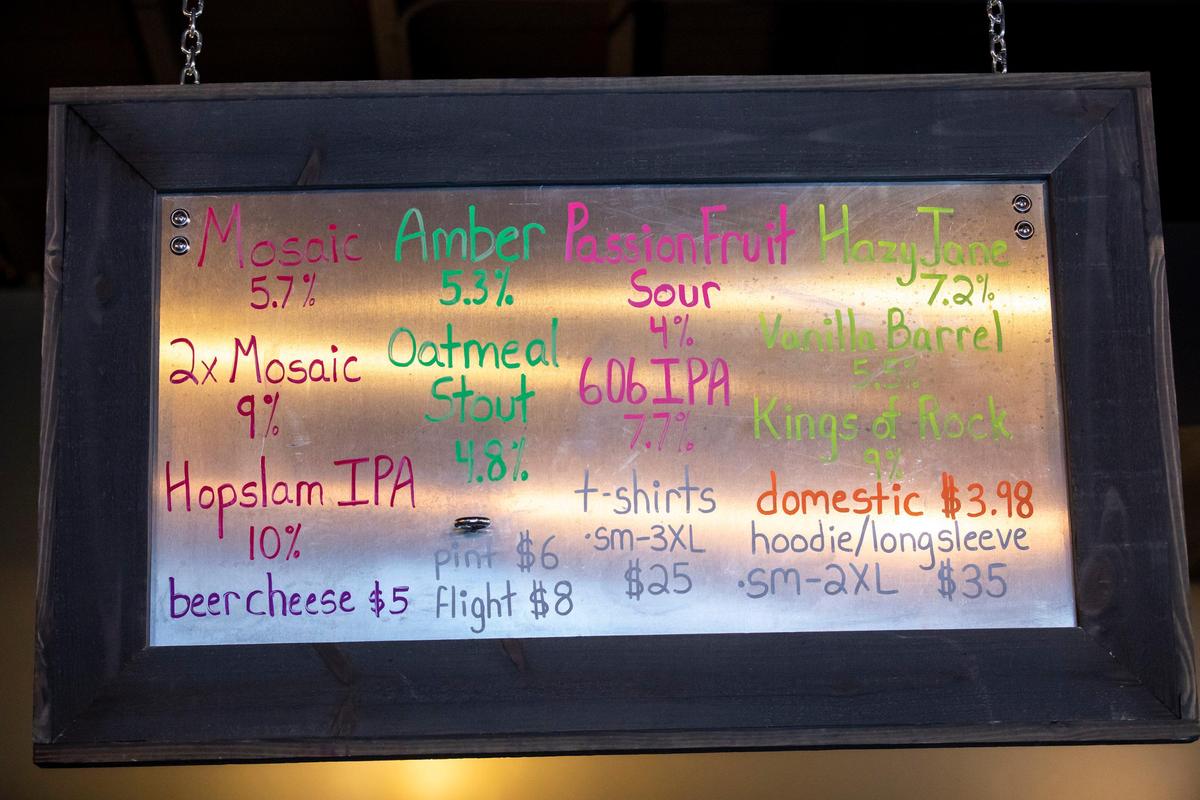 Mosaic
5.7%
2x Mosaic
9%
Hopslam IPA
10%
beer cheese $5
Amber
5.3%
Oatmeal
Stout
4.8%
pint $6
flight $8
PassionFruit
Sour
4%
606 IPA
7.7%
t-shirts
·sm-3XL
$25
Hazy Jane
7.2%
Vanilla Barrel
5.5%
Kings of Rock
9%
domestic $3.98
hoodie/longsleeve
·sm-2XL $35